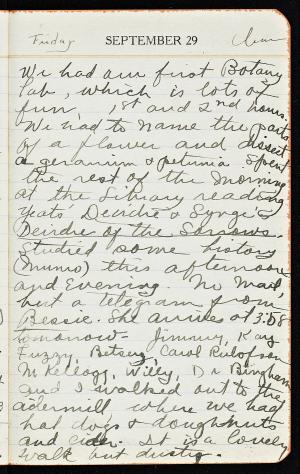 Friday SEPTEMBER 29 Clear
We had our first Botany
lab, which is lots of
fun, 1st and 2nd hours.
We had to name the parts
of a flower and dissect
a geranium & petunia. Spent
the rest of the morning
at the Library reading
Yeats' Deirdre & Synge's
Deirdre of the Sorrows.
Studied some history
(Munro) this afternoon
and evening. No mail,
but a telegram from
Bessie. She arrives at 3:58
tomorrow. Jimmy, Kay
Fuzzy, Betsey, Carol Rulofson
M Kellogg, Willy, D & Bingham
and I walked out to the
cidermill where we had
hot dogs & doughnuts
and cider. It is a lovely
walk but dusty.